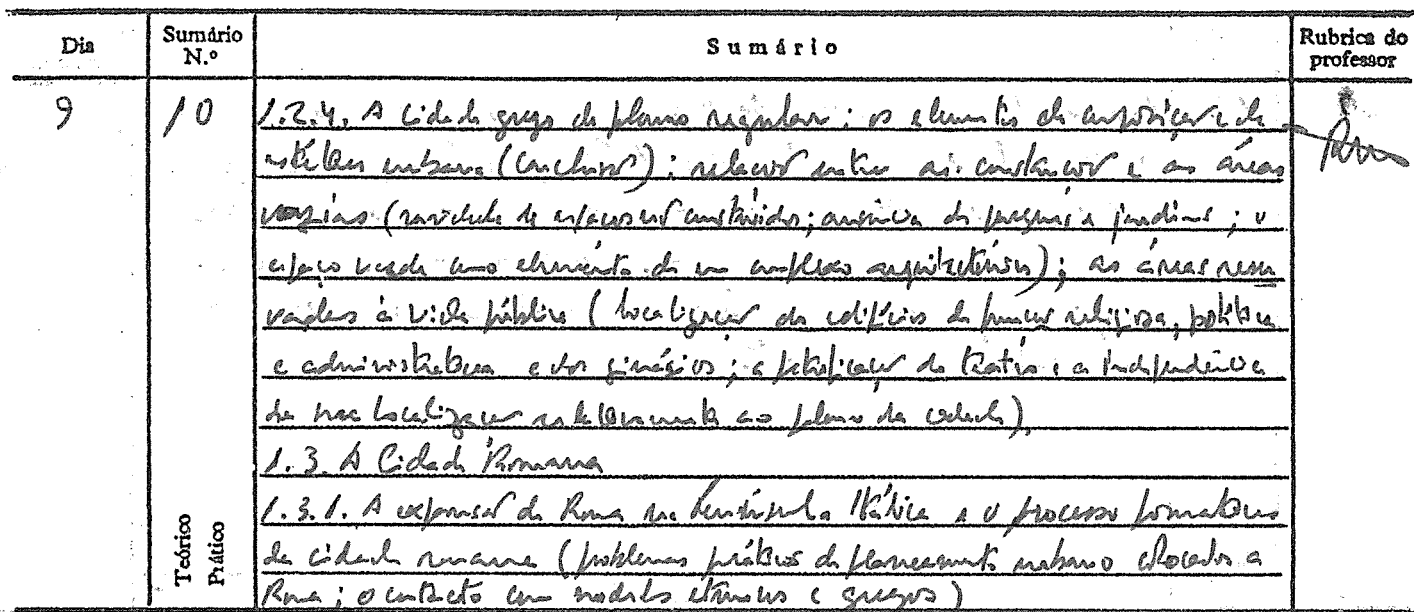 Dia Sumário N.º Sumário Rubrica do professor
9 10 1.2.4. A cidade grega de plano regular: os elementos de composição e de
estética urbana (conclusão): relação entre as construções e as áreas
vazias (variedade de espaços não construídos; ausência de parques e jardins; o
espaço verde como elemento de um complexo arquitetónico); as áreas reser
vadas à vida pública (localização dos edifícios de função religiosa, política
e administrativa e dos ginásios; a petrificação do teatro e a independência
da sua localização relativamente ao plano da cidade)
1.3. A Cidade Romana
1.3.1. A expansão de Roma na Península Itálica e o processo formativo
da cidade romana (problemas práticos de planeamento urbano colocados a
Roma; o contacto com modelos etruscos e gregos)
Teórico
Prático